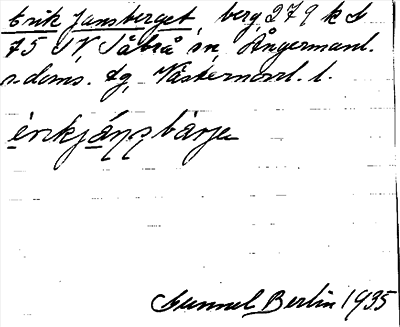 Erik Jansberget, berg 279 k S
75 SV Säbrå sn, Ångermanl.
s. doms. dg, Västernorrl. l.
èrikjánsbärje
Gunnel Berlin 1935